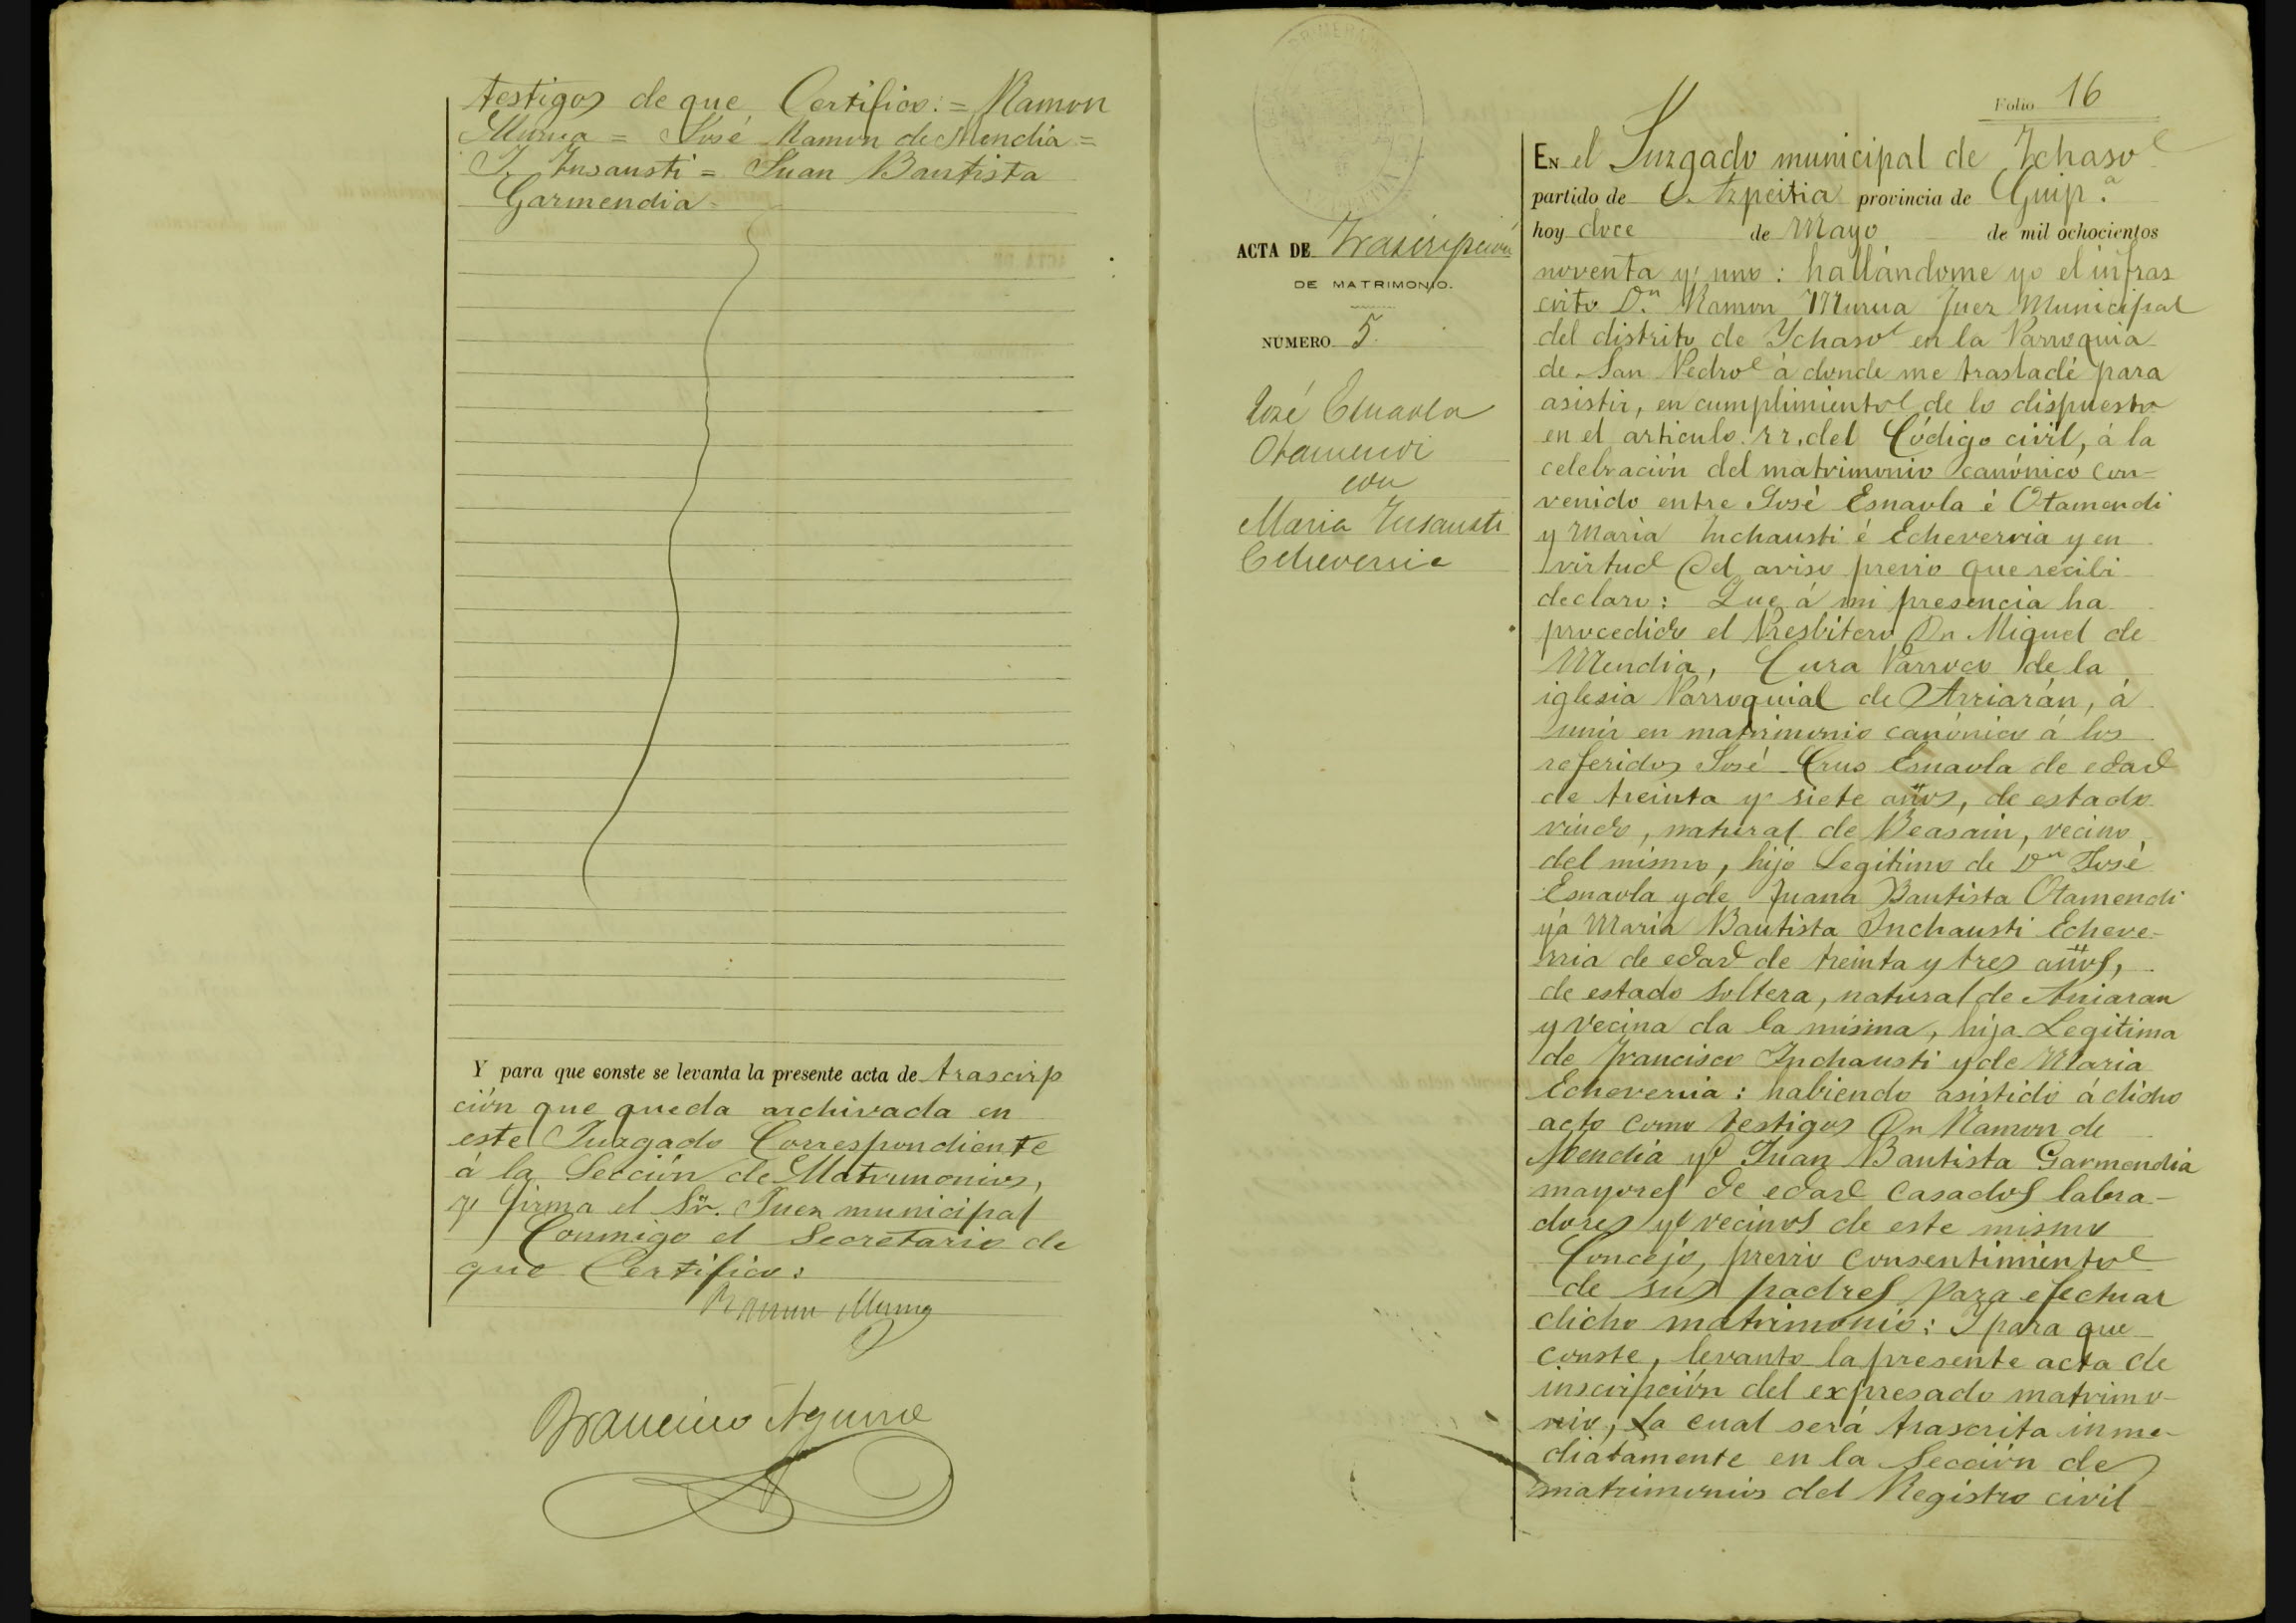 testigos de que Certifico: = Ramon
Murua = José Ramon de Mendia =
J. Insausti = Juan Bautista
Garmendia =
Y para que conste se levanta la presente acta de trascirp
ción que queda archivada en
este Juzgado Correspondiente
á la Sección de Matrimonios,
y firma el Sr. Juez municipal
Conmigo el Secretario de
que Certifico:
Ramon Murua
Francisco Aguirre
ACTA DE Trascripcion
DE MATRIMONIO.
NÚMERO 5
José Esnaola
Otamendi
con
Maria Insausti
Echeverria
Folio 16
EN el Juzgado municipal de Ichaso
partido de Azpeitia provincia de Guip.ª
hoy doce de Mayo de mil ochocientos
noventa y uno: hallándome yo el infras
crito Dn. Ramon Murua Juez Municipal
del distrito de Ychaso en la Parroquia
de San Pedro á donde me trasladé para
asistir, en cumplimiento de lo dispuesto
en el articulo del Código civil, á la
celebración del matrimonio canónico con-
venido entre José Esnaola é Otamendi
y Maria Inchausti é Echeverria y en
virtud del aviso previo que recibi
declaro: Que á mi presencia ha
procedido el Presbitero Dn Miguel de
Mendia, Cura Parroco de la
iglesia Parroquial de Arriarán, á
unir en matrimonio canónico á los
referidos José Crus Esnaola de edad
de treinta y siete años, de estado
viudo, natural de Beasain, vecino
del mismo, hijo Legitimo de Dn José
Esnaola y de Juana Bautista Otamendi
y á Maria Bautista Inchausti Echeve-
rria de edad de treinta y tres años,
de estado Soltera, natural de Arriaran
y Vecina da la misma, hija Legitima
de Francisco Inchausti y de Maria
Echeverria: habiendo asistido á dicho
acto como testigos Dn Ramon de
Mendia y Juan Bautista Garmendia
mayores de edad Casados labra-
dores y vecinos de este mismo
Concejo, previo Consentimiento
de sus padres para efectuar
dicho matrimonio: Y para que
conste, levanto la presente acta de
inscirpción del expresado matrimo-
nio, La cual será trascrita inme-
diatamente en la Sección de
matrimonios del Registro civil